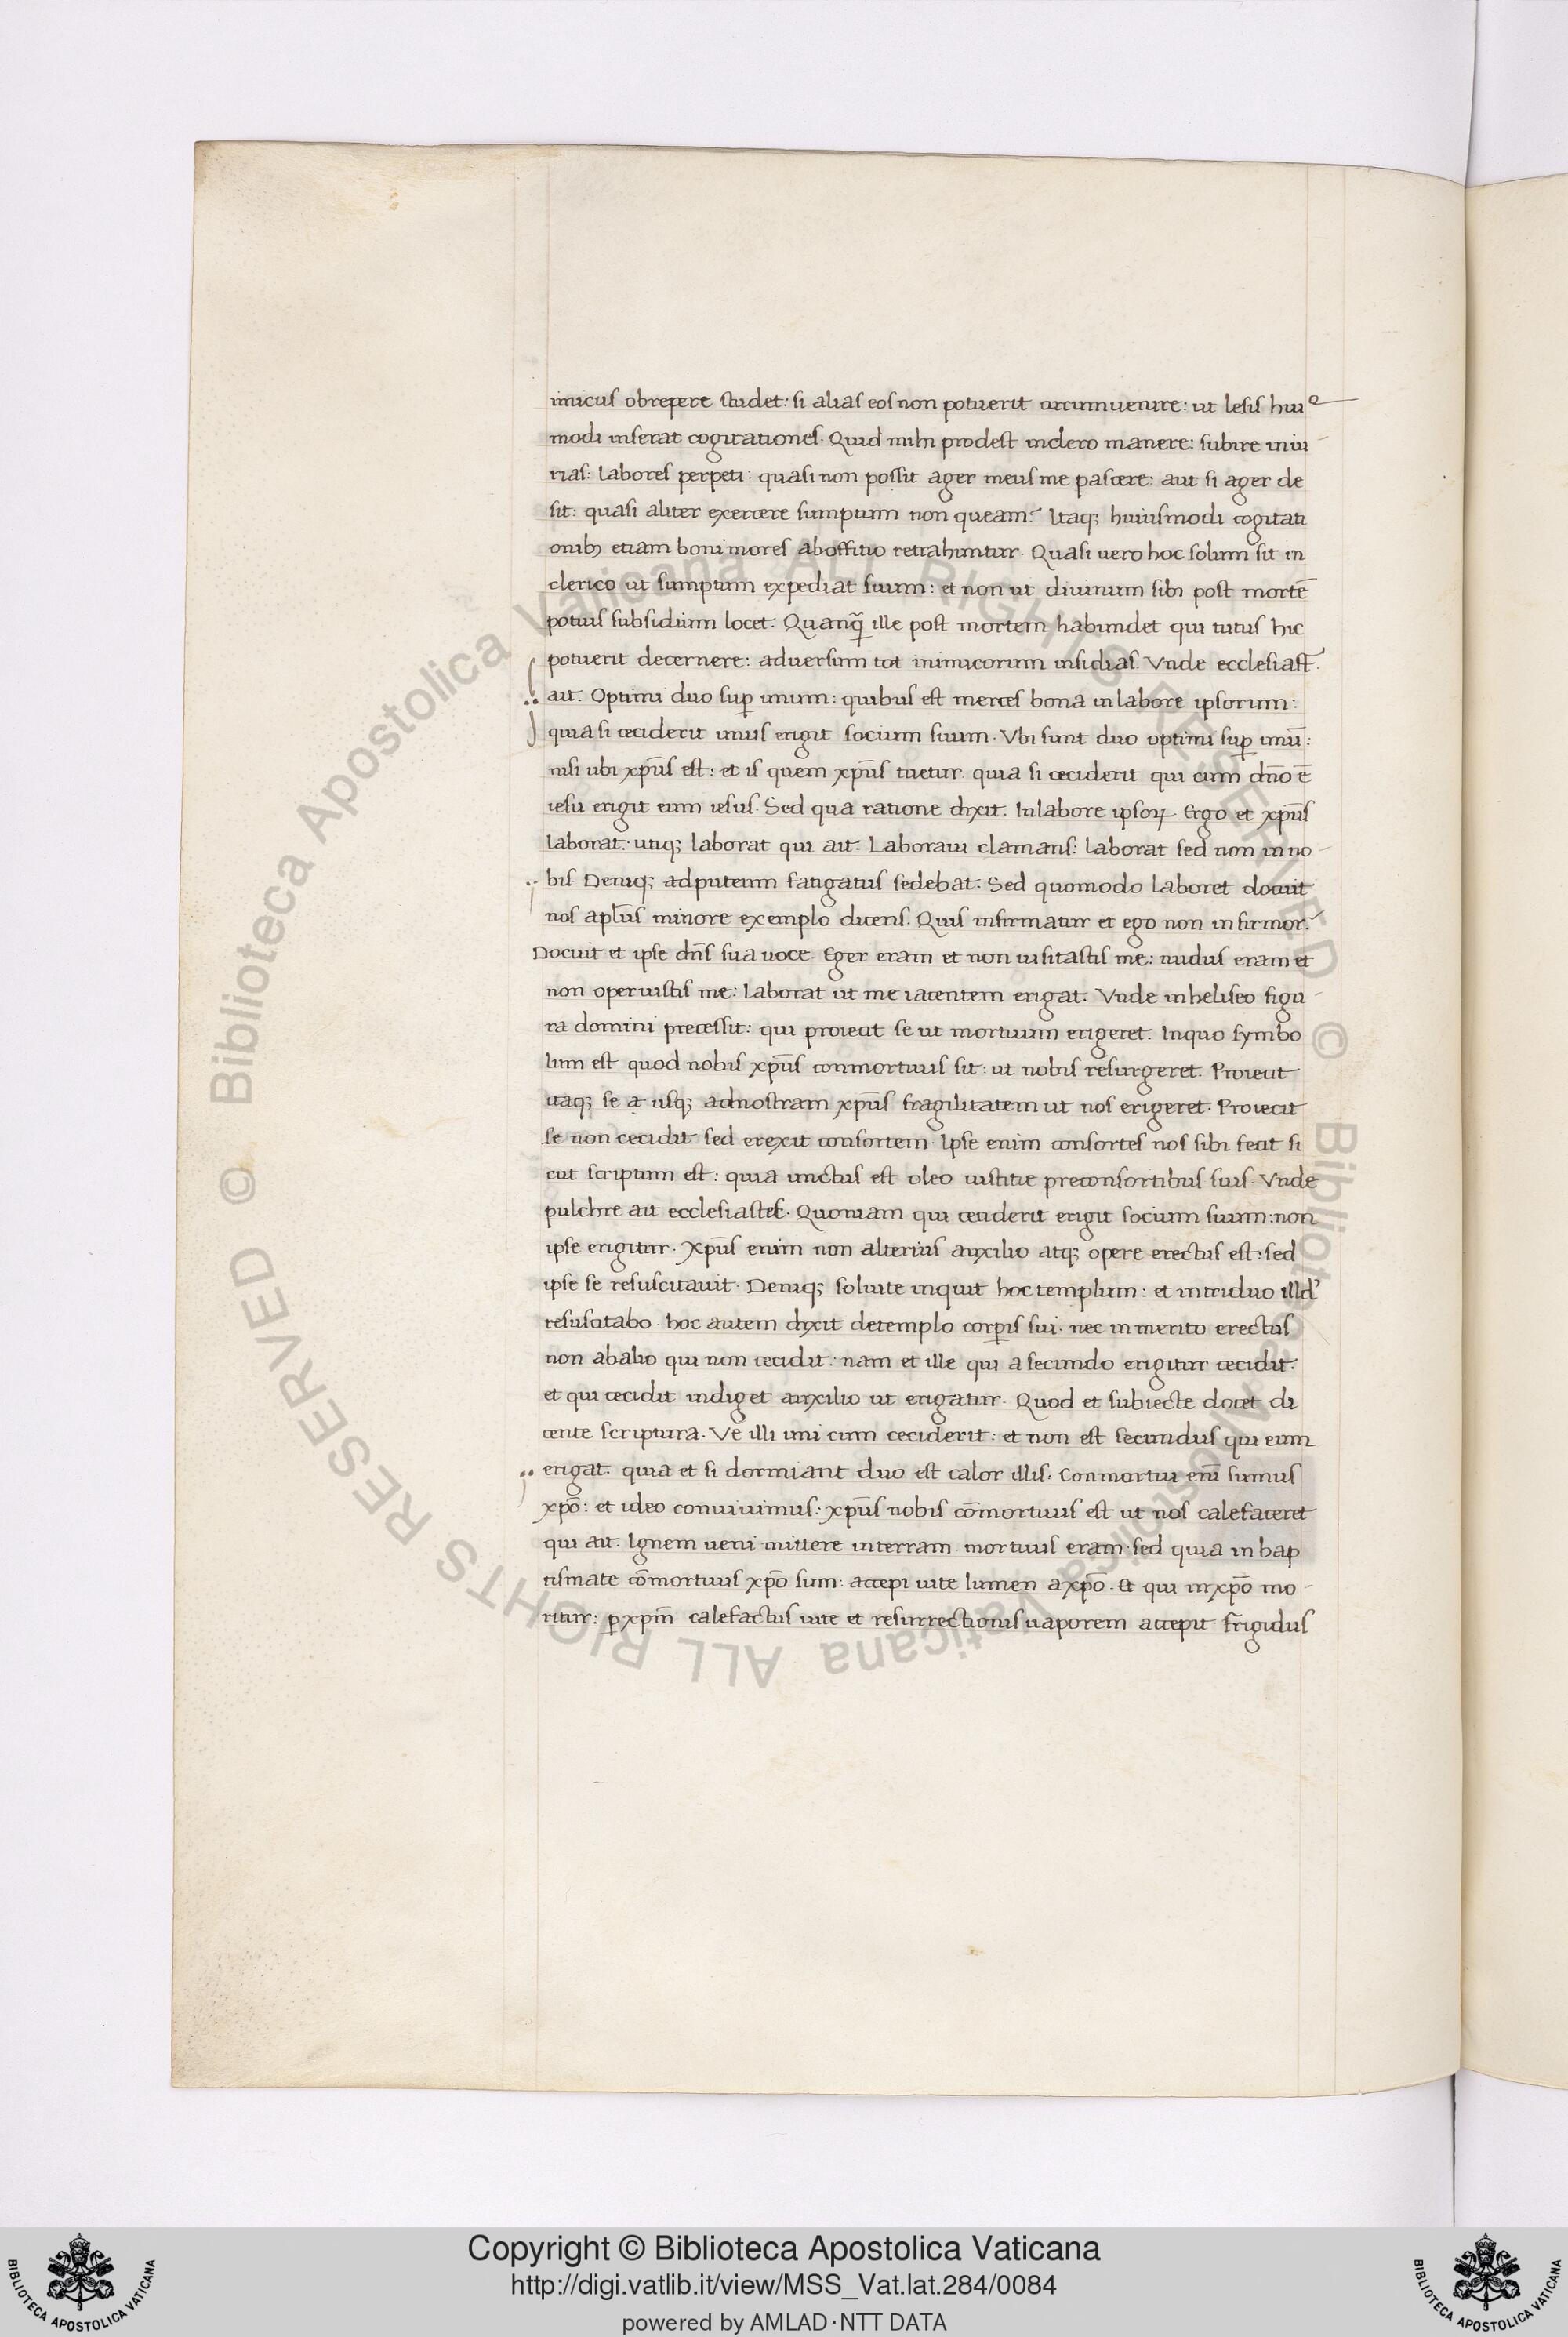 imicus obrepere studet: si alias eos non potuerit circumuenire: ut lesis hui9
modi inserat cogitationes. Quid mihi prodest inclero manere: subire iniu
rias: labores perpeti: quasi non possit ager meus me pascere: aut si ager de
sit: quasi aliter exercere sumptum non queam? Itaq; huiusmodi cogitati
onib; etiam boni mores aboffitio retrahuntur. Quasi uero hoc solum sit in
clerico ut sumptum expediat suum: et non ut diuinum sibi post mortē
potius subsidium locet. Quanq̃ ille post mortem habundet qui tutus hic
potuerit decernere: aduersum tot inimicorum insidias. Vnde ecclesiast'
ait. Optimi duo sup̱ unum: quibus est merces bona in labore ipsorum:
quia si ceciderit unus erigit socium suum. Vbi sunt duo optimi sup̱ unū:
nisi ubi xp̄us est: et is quem xp̄us tuetur. quia si ceciderit qui cum dn̄o ē
iesu erigit eum iesus. Sed qua ratione dixit. In labore ipsoꝝ. Ergo et xp̄us
laborat. utiq; laborat qui ait. Laboraui clamans: laborat sed non in no
bis. Deniq; ad puteum fatigatus sedebat. Sed quomodo laboret docuit
nos apl̄us minore exemplo dicens. Quis infirmatur et ego non infirmor?
Docuit et ipse dn̄s sua uoce. Eger eram et non uisitastis me: nudus eram et
non operuistis me: laborat ut me iacentem erigat. Vnde in heliseo figu
ra domini precessit: qui proiecit se ut mortuum erigeret. Inquo symbo
lum est quod nobis xp̄us conmortuus sit: ut nobis resurgeret. Proiecit
itaq; se a usq; adnostram xp̄us fragilitatem ut nos erigeret. Proiecit
se non cecidit sed erexit consortem. Ipse enim consortes nos sibi fecit si
cut scriptum est: quia unctus est oleo iustitie preconsortibus suis. Vnde
pulchre ait ecclesiastes. Quoniam qui ceciderit erigit socium suum: non
ipse erigitur. Xp̄us enim non alterius auxilio atq; opere erectus est: sed
ipse se resuscitauit. Deniq; soluite inquit hoc templum: et in triduo illd'
resuscitabo. hoc autem dixit detemplo corp̱is sui. nec inmerito erectus
non abalio qui non cecidit: nam et ille qui a secundo erigitur cecidit.
et qui cecidit indiget auxilio ut erigatur. Quod et subiecte docet di
cente scriptura. Ve illi uni cum ceciderit: et non est secundus qui eum
erigat. quia et si dormiant duo est calor illis. Conmortui eni᷈ sumus
xp̄o: et ideo conuiuimus: xp̄us nobis cōmortuus est ut nos calefaceret
qui ait. Ignem ueni mittere interram. mortuus eram: sed quia in bap
tismate cōmortuus xp̄o sum: accepi uite lumen a xp̄o. Et qui in xp̄o mo
ritur: ꝑ xp̄m calefactus uite et resurrectionis uaporem accepit. frigidus
Copyright © Biblioteca Apostolica Vaticana
http://digi.vatlib.it/view/MSS_Vat.lat.284/0084
powered by AMLAD·NTT DATA
BIBLIOTECA APOSTOLICA VATICANA
BIBLIOTECA APOSTOLICA VATICANA
© Biblioteca Apostolica Vaticana ALL RIGHTS RESERVED © Biblioteca Apostolica Vaticana ALL RIGHTS RESERVED